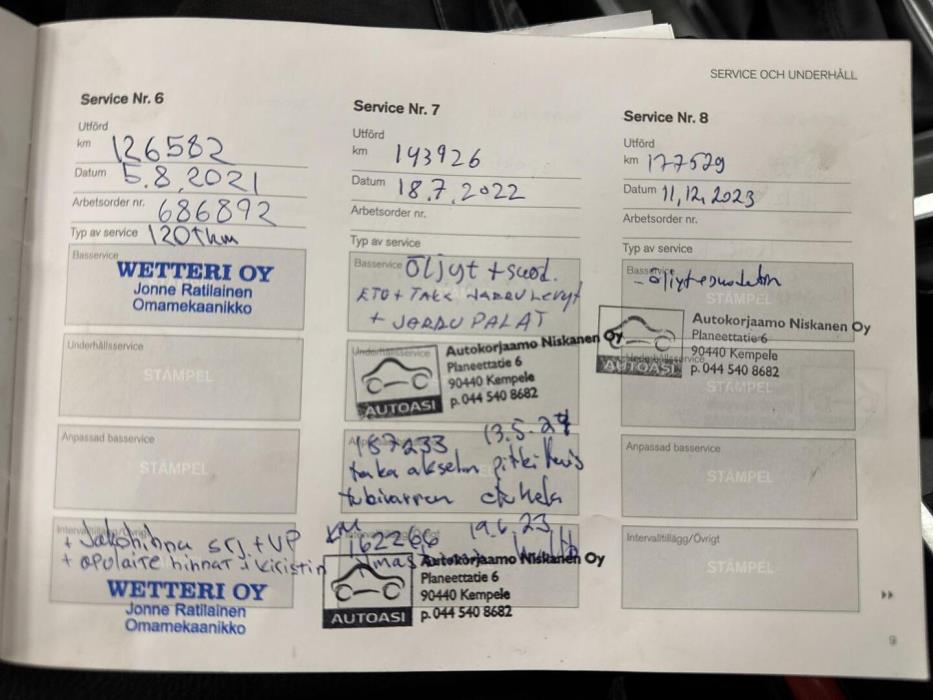 SERVICE OCH UNDERHÅLL
Service Nr. 6
Utförd
km 126582
Datum 5.8.2021
Arbetsorder nr. 686892
Typ av service 120tkm
Basservice
WETTERI OY
Jonne Ratilainen
Omamekaanikko
Underhållsservice
STÄMPEL
Anpassad basservice
STÄMPEL
Intervalltillägg/Övrigt
+ Jakohihna srj. + VP
+ apulaite hihnat + kiristin
WETTERI OY
Jonne Ratilainen
Omamekaanikko
Service Nr. 7
Utförd
km 143926
Datum 18.7.2022
Arbetsorder nr.
Typ av service
Basservice Öljyt + suod.
ETU + TAKA JARRULevyt
+ JARRU PALAT
Underhållsservice
Autokorjaamo Niskanen Oy
Planeettatie 6
90440 Kempele
p. 044 540 8682
AUTOASI
187233 13.5.24
taka akselin pitkittäis
tukivarren
km 162266 19.6.23
Autokorjaamo Niskanen Oy
Planeettatie 6
90440 Kempele
p. 044 540 8682
AUTOASI
Service Nr. 8
Utförd
km 177529
Datum 11,12,2023
Arbetsorder nr.
Typ av service
Basservice
- öljyt + suodatin
STÄMPEL
Autokorjaamo Niskanen Oy
Planeettatie 6
90440 Kempele
p. 044 540 8682
AUTOASI
STÄMPEL
Anpassad basservice
STÄMPEL
Intervalltillägg/Övrigt
STÄMPEL
9